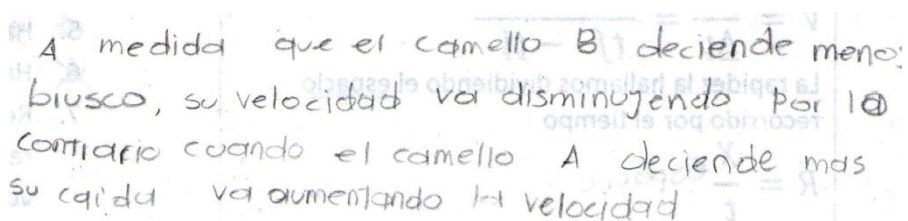 A medida que el camello B deciende menos
brusco, su velocidad va disminuyendo por lo
contrario cuando el camello A deciende mas
su caida va aumentando la velocidad